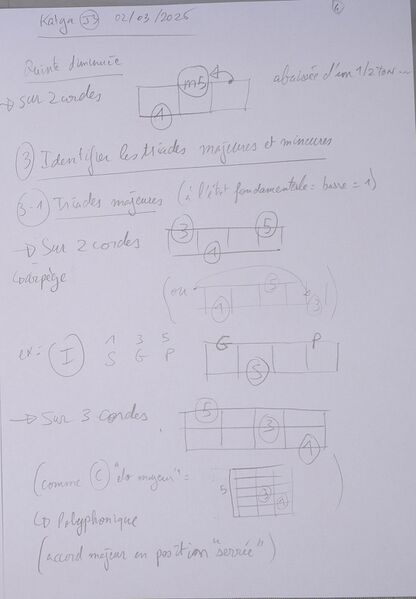 Kalga J3 02/03/2025
Quinte diminuée
→ Sur 2 cordes
m5
1
abaissée d'un 1/2 ton ...
③ Identifier les triades majeures et mineures
3-1 Triades majeures (à l'état fondamentale = basse = 1)
→ Sur 2 cordes
3 5
1
↳ arpège
(ou
5
1 3
)
ex = I
1 3 5
S G P
G P
S
→ Sur 3 cordes
5
3
1
(comme C "do majeur" =
5
3
1
)
↳ Polyphonique
(accord majeur en position "serrée")